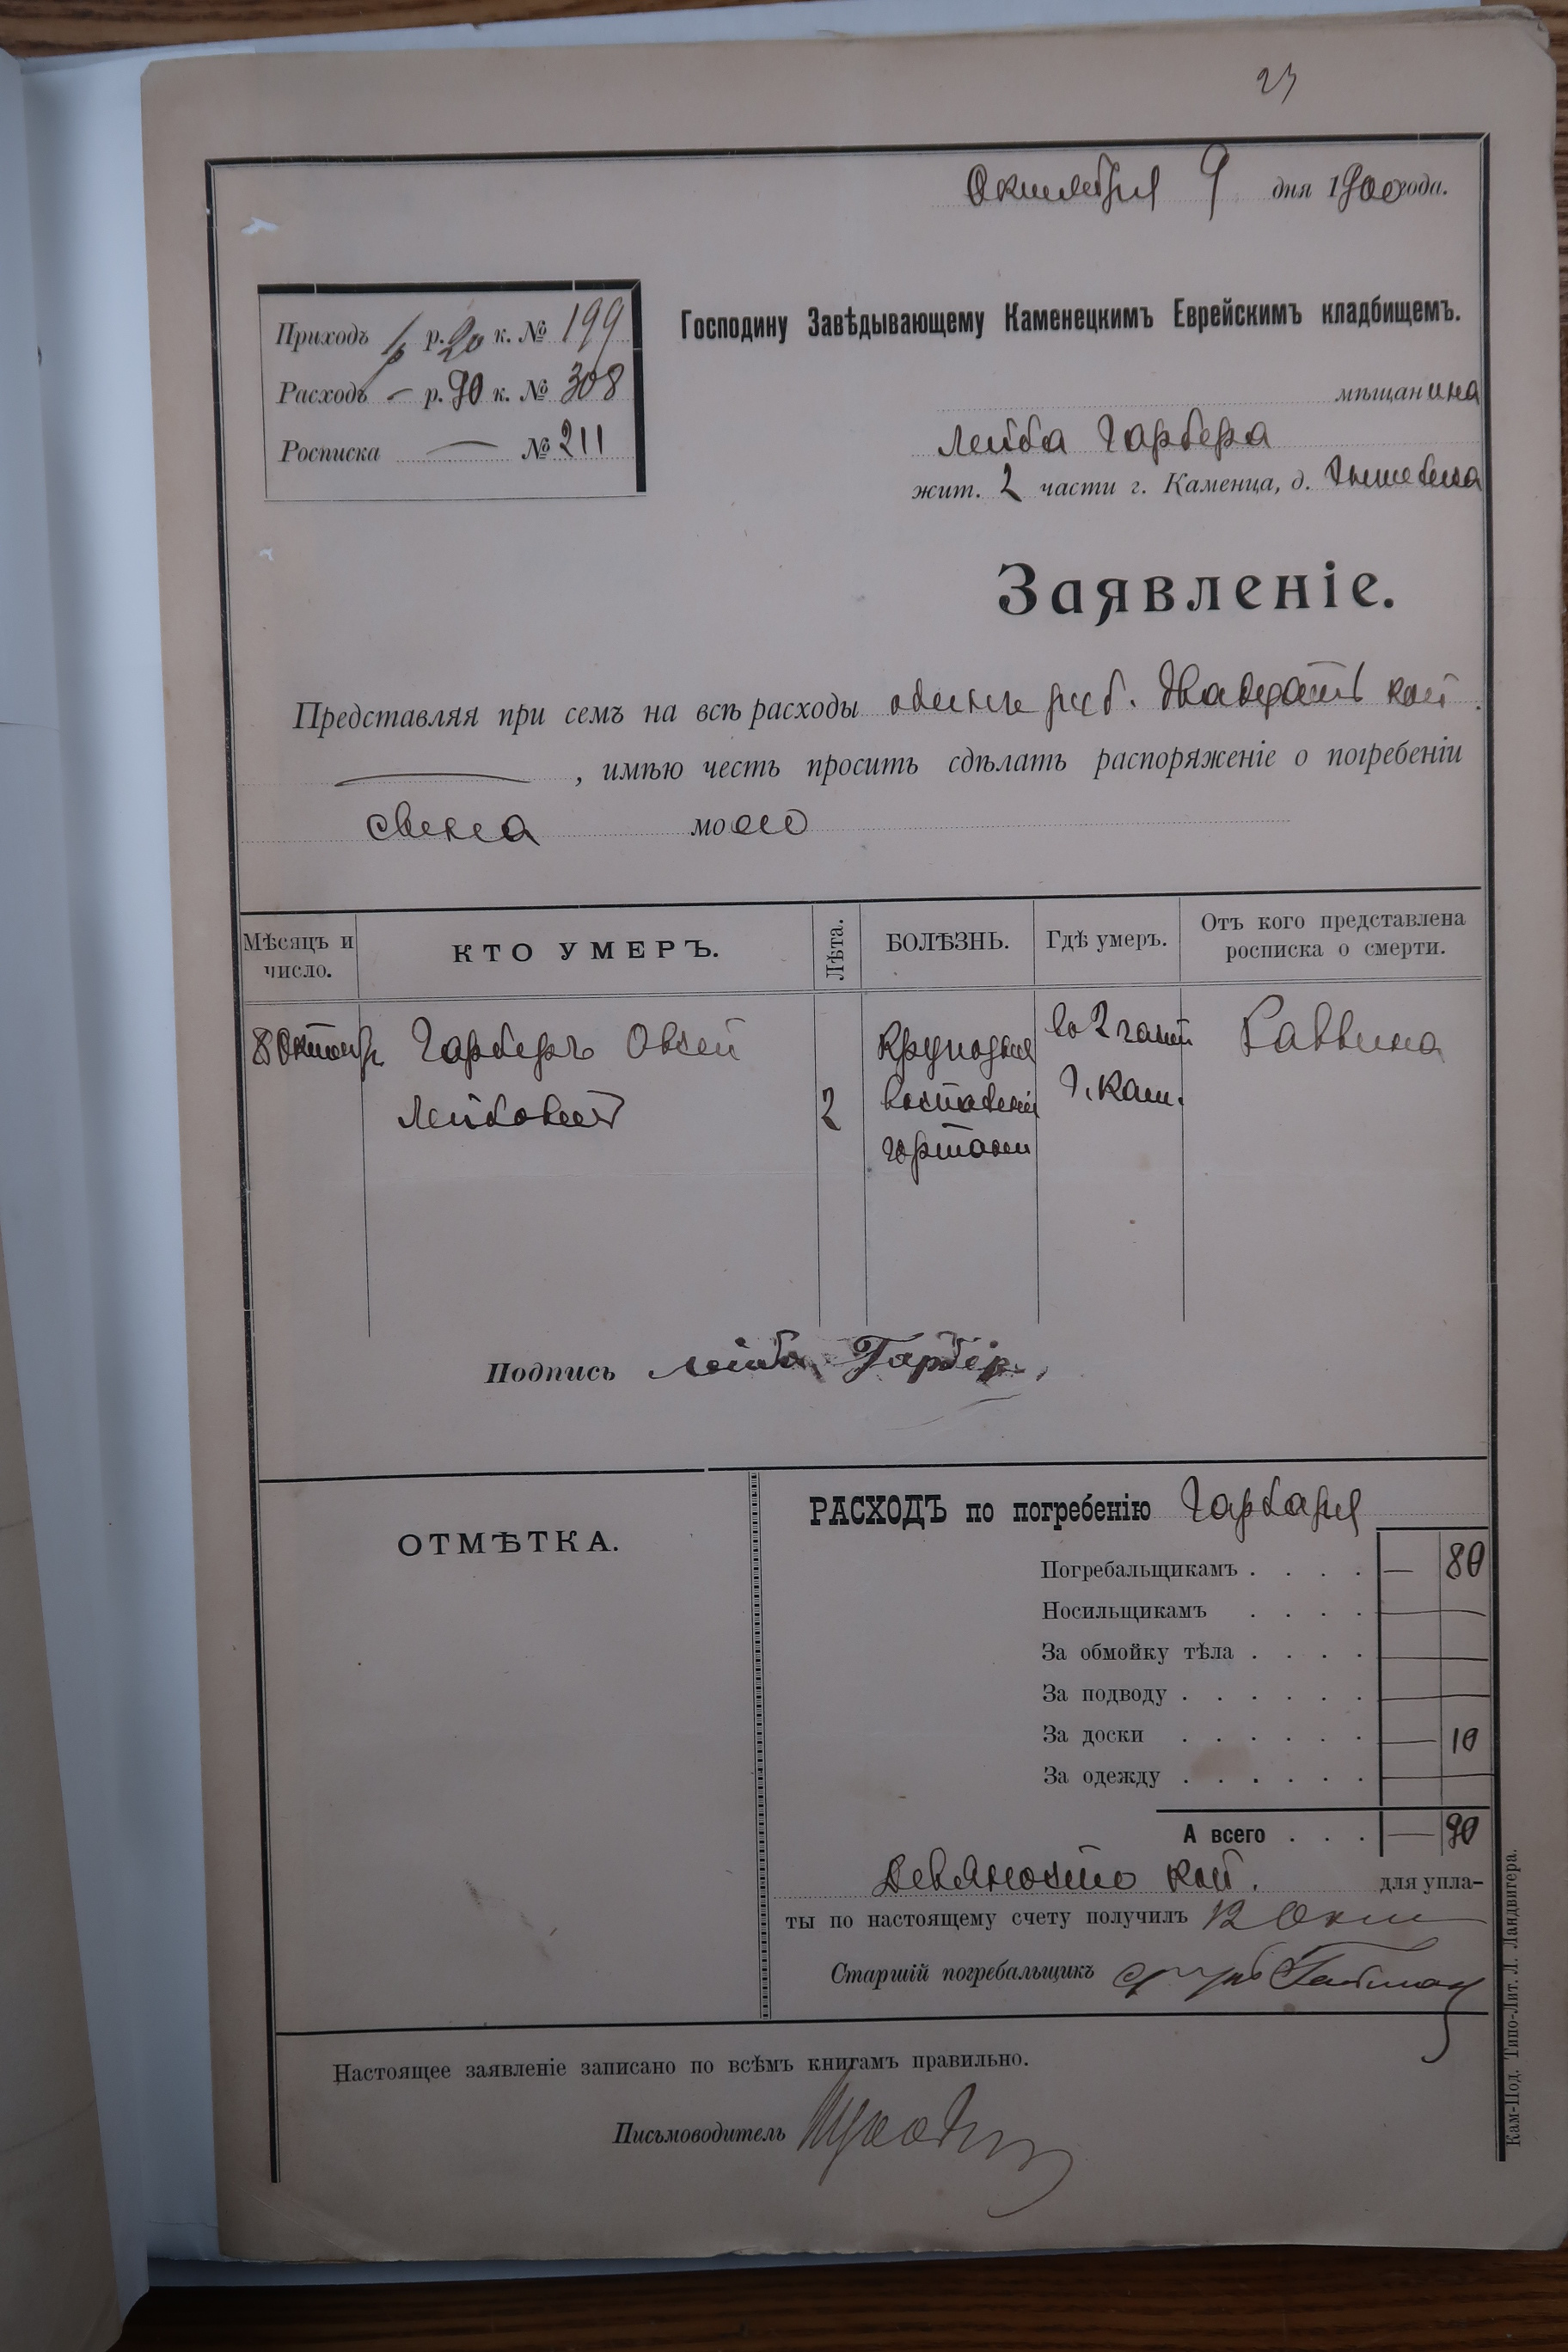 23
Октября 9 дня 1900 года.
Приходъ 1 р. 20 к. № 199
Расходъ — р. 90 к. № 308
Росписка — № 211
Господину Завѣдывающему Каменецкимъ Еврейскимъ кладбищемъ.
мѣщанина
Лейба Гарбера
жит. 2 части г. Каменца, д.
Заявленіе.
Представляя при семъ на всѣ расходы одинъ руб. двадцать коп.
—, имѣю честь просить сдѣлать распоряженіе о погребеніи
сына моего
Мѣсяцъ и число. КТО УМЕРЪ. Лѣта. БОЛѢЗНЬ. Гдѣ умеръ. Отъ кого представлена росписка о смерти.
8 Октября Гарберъ Овсей Во 2 части Раввина
Лейбовичъ 2 г. Кам.
гортани
Подпись Лейба Гарбер
ОТМѢТКА.
РАСХОДЪ по погребенію Гарбара
Погребальщикамъ . . . . — 80
Носильщикамъ . . . . —
За обмойку тѣла . . . . —
За подводу . . . . . . —
За доски . . . . . . — 10
За одежду . . . . . . —
А всего . . . — 90
Девяносто коп. для упла-
ты по настоящему счету получилъ 12 Окт
Старшій погребальщикъ
Настоящее заявленіе записано по всѣмъ книгамъ правильно.
Письмоводитель
Кам-Под. Типо-Лит. Л. Ландвигера.